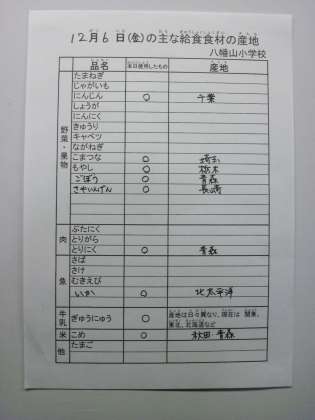 12月6日(金)の主な給食食材の産地
八幡山小学校
品名 本日使用したもの 産地
野菜・果物
たまねぎ
じゃがいも
にんじん ○ 千葉
しょうが
にんにく
きゅうり
キャベツ
ながねぎ
こまつな ○ 埼玉
もやし ○ 栃木
ごぼう ○ 青森
さやいんげん ○ 長崎
肉
ぶたにく
とりがら
とりにく ○ 青森
魚
さば
さけ
むきえび
いか ○ 北太平洋
牛乳 ぎゅうにゅう ○ 産地は日々異なり、現在は 関東、
東北、北海道など
米 こめ ○ 秋田 青森
他 たまご